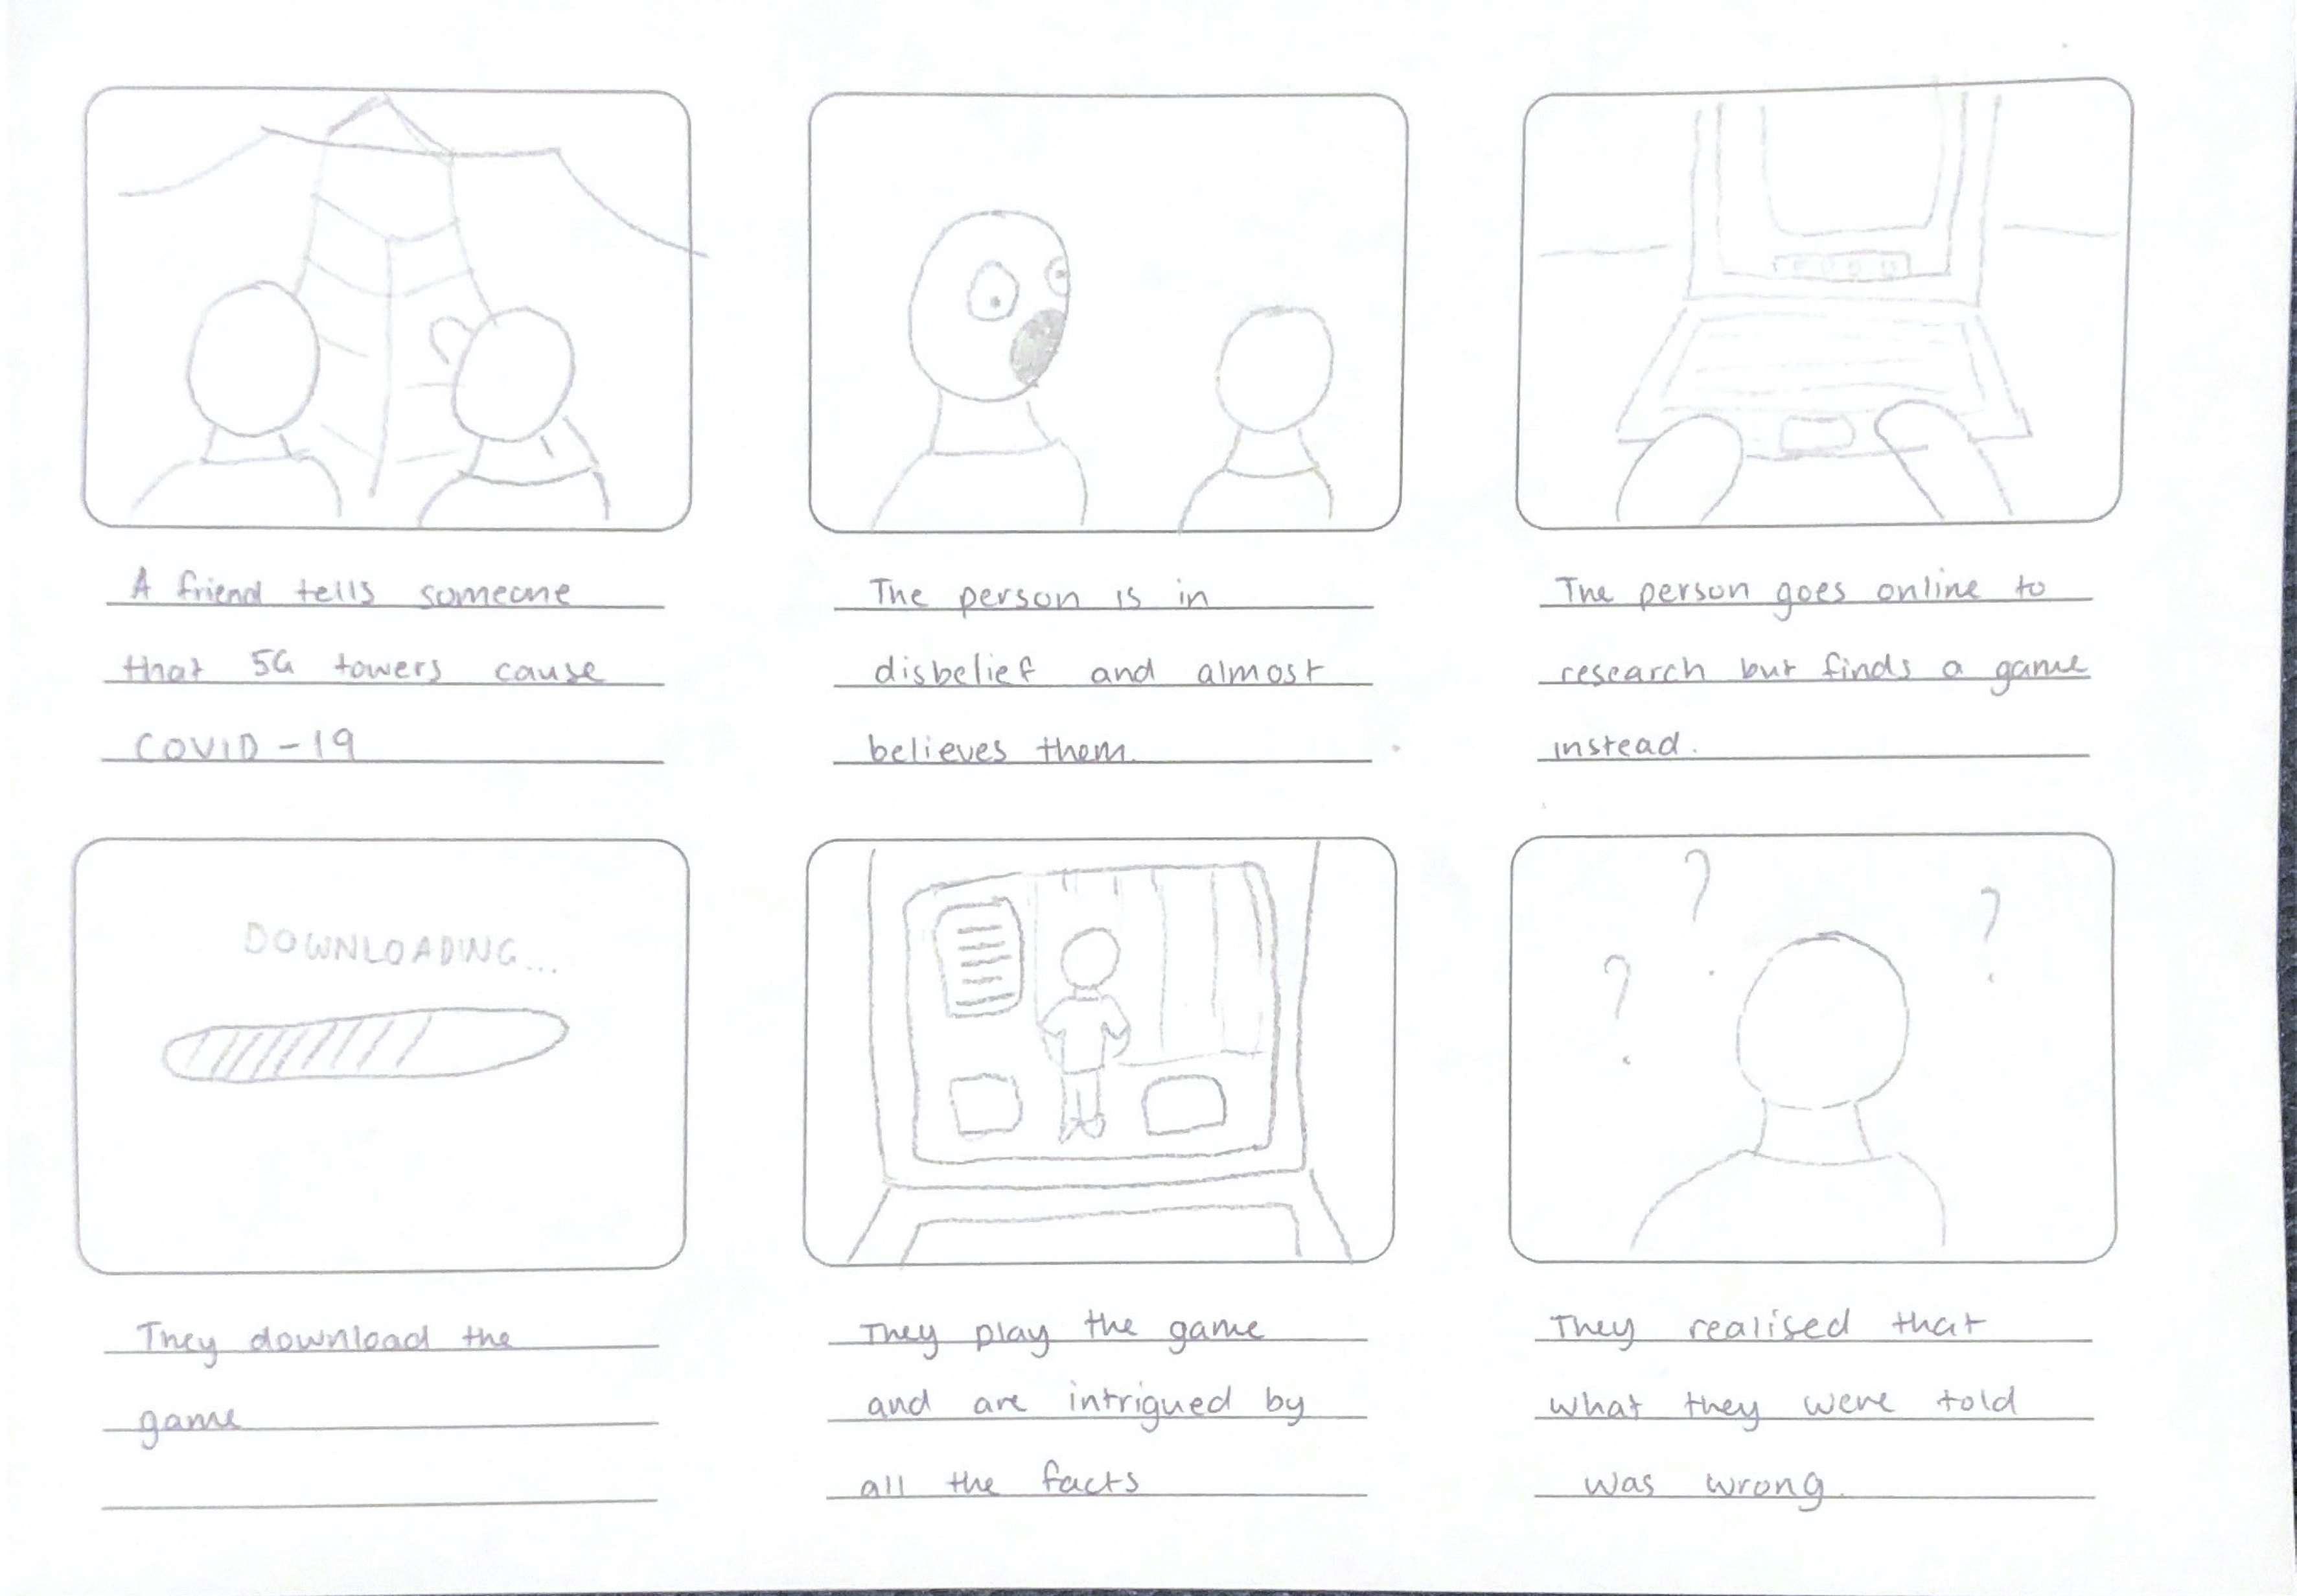 A friend tells someone
that 5G towers cause
COVID-19
The person is in
disbelief and almost
believes them.
The person goes online to
research but finds a game
instead.
DOWNLOADING...
They download the
game
They play the game
and are intrigued by
all the facts
? ? ?
They realised that
what they were told
was wrong.